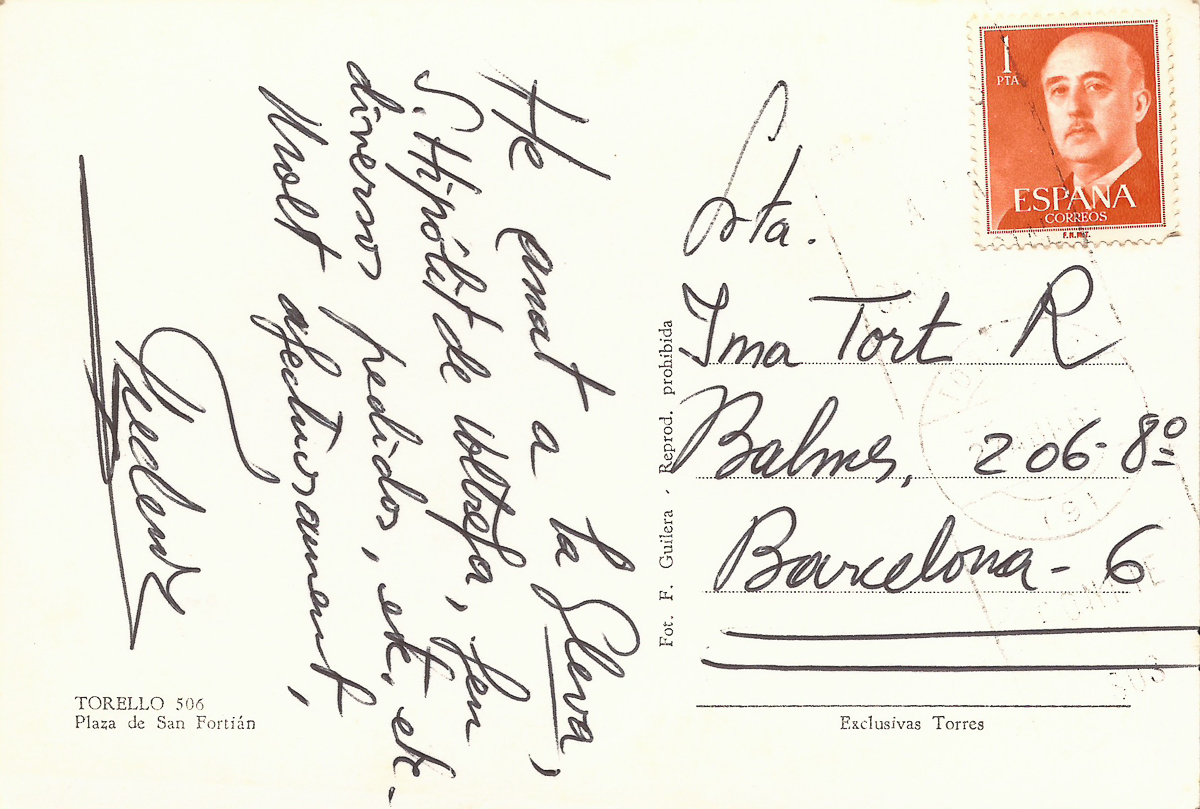 He anat a la Gleva,
S. Hipòlit de Voltregà, fen
diversos pedidos, etc, etc.
Molt afectuosament,
TORELLO 506
Plaza de San Fortián
Fot. F. Guilera - Reprod. prohibida
1
PTA
ESPAÑA
CORREOS
F.N.M.T.
Srta.
Ima Tort R
Balmes, 206-8º
Barcelona-6
Exclusivas Torres